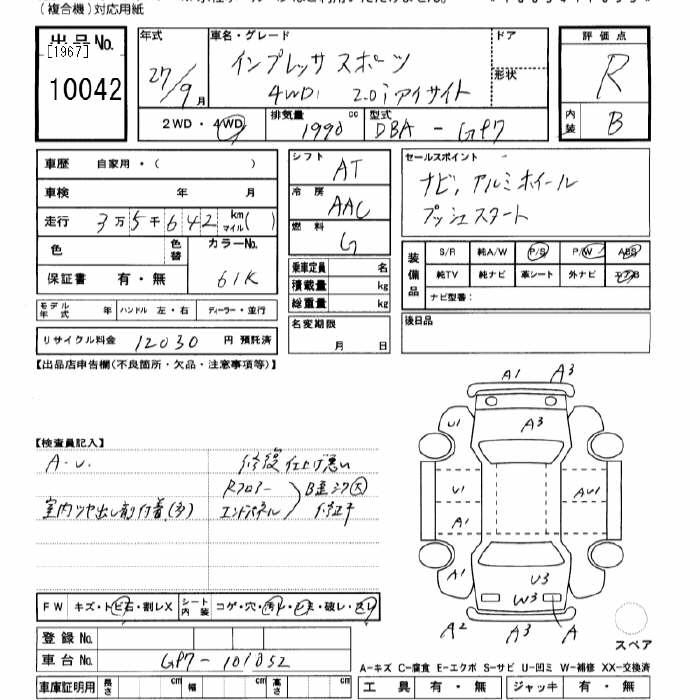 (複合機)対応用紙
出品No.
[1967]
10042
年式 27/9月
車名・グレード インプレッサ スポーツ
4WD 2.0i・アイサイト
ドア
形状
評価点 R
内装 B
2WD・4WD 排気量 1990 cc 型式 DBA-GP7
車歴 自家用・( )
車検 年 月
走行 3万5千642 km マイル( )
色 色替 カラーNo. 61K
保証書 有・無
モデル年式 年 ハンドル 左・右 ディーラー・並行
リサイクル料金 12030 円 預託済
シフト AT
冷房 AAC
燃料 G
乗車定員 名
積載量 kg
総重量 kg
名変期限 月 日
セールスポイント
ナビ, アルミホイール
プッシュスタート
装備品 S/R 純A/W P/S P/W ABS
純TV 純ナビ 革シート 外ナビ エアB
ナビ型番:
後日品
【出品店申告欄(不良箇所・欠品・注意事項等)】
【検査員記入】
A・U.
室内ツヤ出し剤付着(多)
修復仕上げ悪い
Rフロアー
エンドパネル
B歪
修正キ
A1 A3
U1 A3
U1 AU1
A1
A1 U3
W3
A2 A3 A
スペア
FW キズ・トビ石・割レX シート内装 コゲ・穴・汚レ・シミ・破レ・スレ
登録No.
車台No. GP7-101052
車庫証明用 長さ cm 幅 cm 高さ cm
A-キズ C-腐食 E-エクボ S-サビ U-凹ミ W-補修 XX-交換済
工具 有・無 ジャッキ 有・無